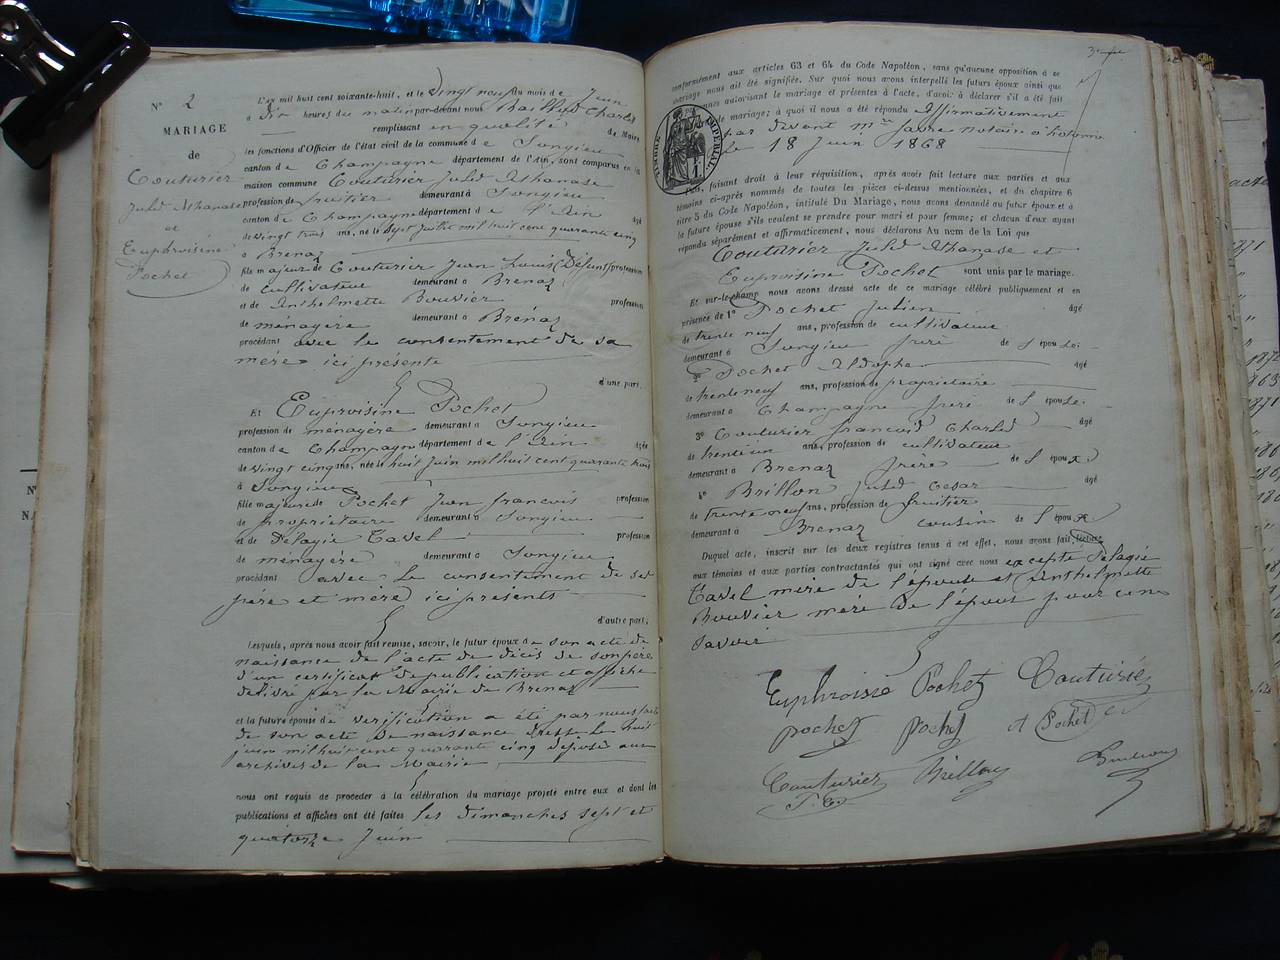 N° 2
MARIAGE
de
Couturier
Jules Athanase
et
Euphroisine
Pochet
L'an mil huit cent soixante-huit, et le vingt neuf du mois de Juin
à Dix heures du matin par-devant nous Baillod Charles
remplissant en qualité de Maire
les fonctions d'Officier de l'état civil de la commune de Songieu
canton de Champagne département de l'Ain, sont comparus en la
maison commune Couturier Jules Athanase
profession de fruitier demeurant à Songieu
canton de Champagne département de l'Ain âgé
de vingt trois ans, né le Sept Juillet mil huit cent quarante cinq
à Brenaz
fils majeur de Couturier Jean Louis (Défunt) profession
de cultivateur demeurant à Brenaz
et de Anthelmette Bouvier profession
de ménagère demeurant à Brénaz
procédant avec le consentement de sa
mère ici présente
d'une part,
Et Euproisine Pochet
profession de ménagère demeurant à Songieu
canton de Champagne département de l'Ain âgée
de vingt cinq ans, née le huit Juin mil huit cent quarante trois
à Songieu
fille majeure de Pochet Jean françois profession
de propriétaire demeurant à Songieu
et de Pélagie Tavel profession
de ménagère demeurant à Songieu
procédant avec le consentement de ses
père et mère ici présents
d'autre part;
Lesquels, après nous avoir fait remise, savoir, le futur époux de son acte de
naissance de l'acte de décès de son père
d'un certificat de publication et affiche
délivré par la Mairie de Brenaz
et la future épouse de vérification a été par nous faite
de son acte de naissance dressé le huit
juin mil huit cent quarante cinq déposé aux
archives de la Mairie
nous ont requis de procéder à la célébration du mariage projeté entre eux et dont les
publications et affiches ont été faites les dimanches sept et
quatorze Juin
conformément aux articles 63 et 64 du Code Napoléon, sans qu'aucune opposition à ce
mariage nous ait été signifiée. Sur quoi nous avons interpellé les futurs époux ainsi que
autorisant le mariage et présentes à l'acte, d'avoir à déclarer s'il a été fait
de mariage; à quoi il nous a été répondu Affirmativement
par devant notaire
le 18 Juin 1868
TIMBRE IMPÉRIAL
faisant droit à leur réquisition, après avoir fait lecture aux parties et aux
témoins ci-après nommés de toutes les pièces ci-dessus mentionnées, et du chapitre 6
titre 5 du Code Napoléon, intitulé Du Mariage, nous avons demandé au futur époux et à
la future épouse s'ils veulent se prendre pour mari et pour femme; et chacun d'eux ayant
répondu séparément et affirmativement, nous déclarons Au nom de la Loi que
Couturier Jules Athanase et
Euproisine Pochet sont unis par le mariage.
Et sur-le-champ nous avons dressé acte de ce mariage célébré publiquement et en
présence de 1° Pochet Julien âgé
de trente neuf ans, profession de cultivateur
demeurant à Songieu frère de l'épouse.
2° Pochet Aldophe âgé
de trente neuf ans, profession de propriétaire
demeurant à Champagne frère de l'épouse.
3° Couturier françois Charles âgé
de trente un ans, profession de cultivateur
demeurant à Brenaz frère de l'époux
4° Brillon Jules Cesar âgé
de trente neuf ans, profession de fruitier
demeurant à Brenaz cousin de l'époux
Duquel acte, inscrit sur les deux registres tenus à cet effet, nous avons fait lecture
aux témoins et aux parties contractantes qui ont signé avec nous excepté Pélagie
Tavel mère de l'épouse et Anthelmette
Bouvier mère de l'époux pour ce ne
savoir
Euphroisse Pochet Couturier
pochet pochet A Pochet
Couturier Brillon
F. C.